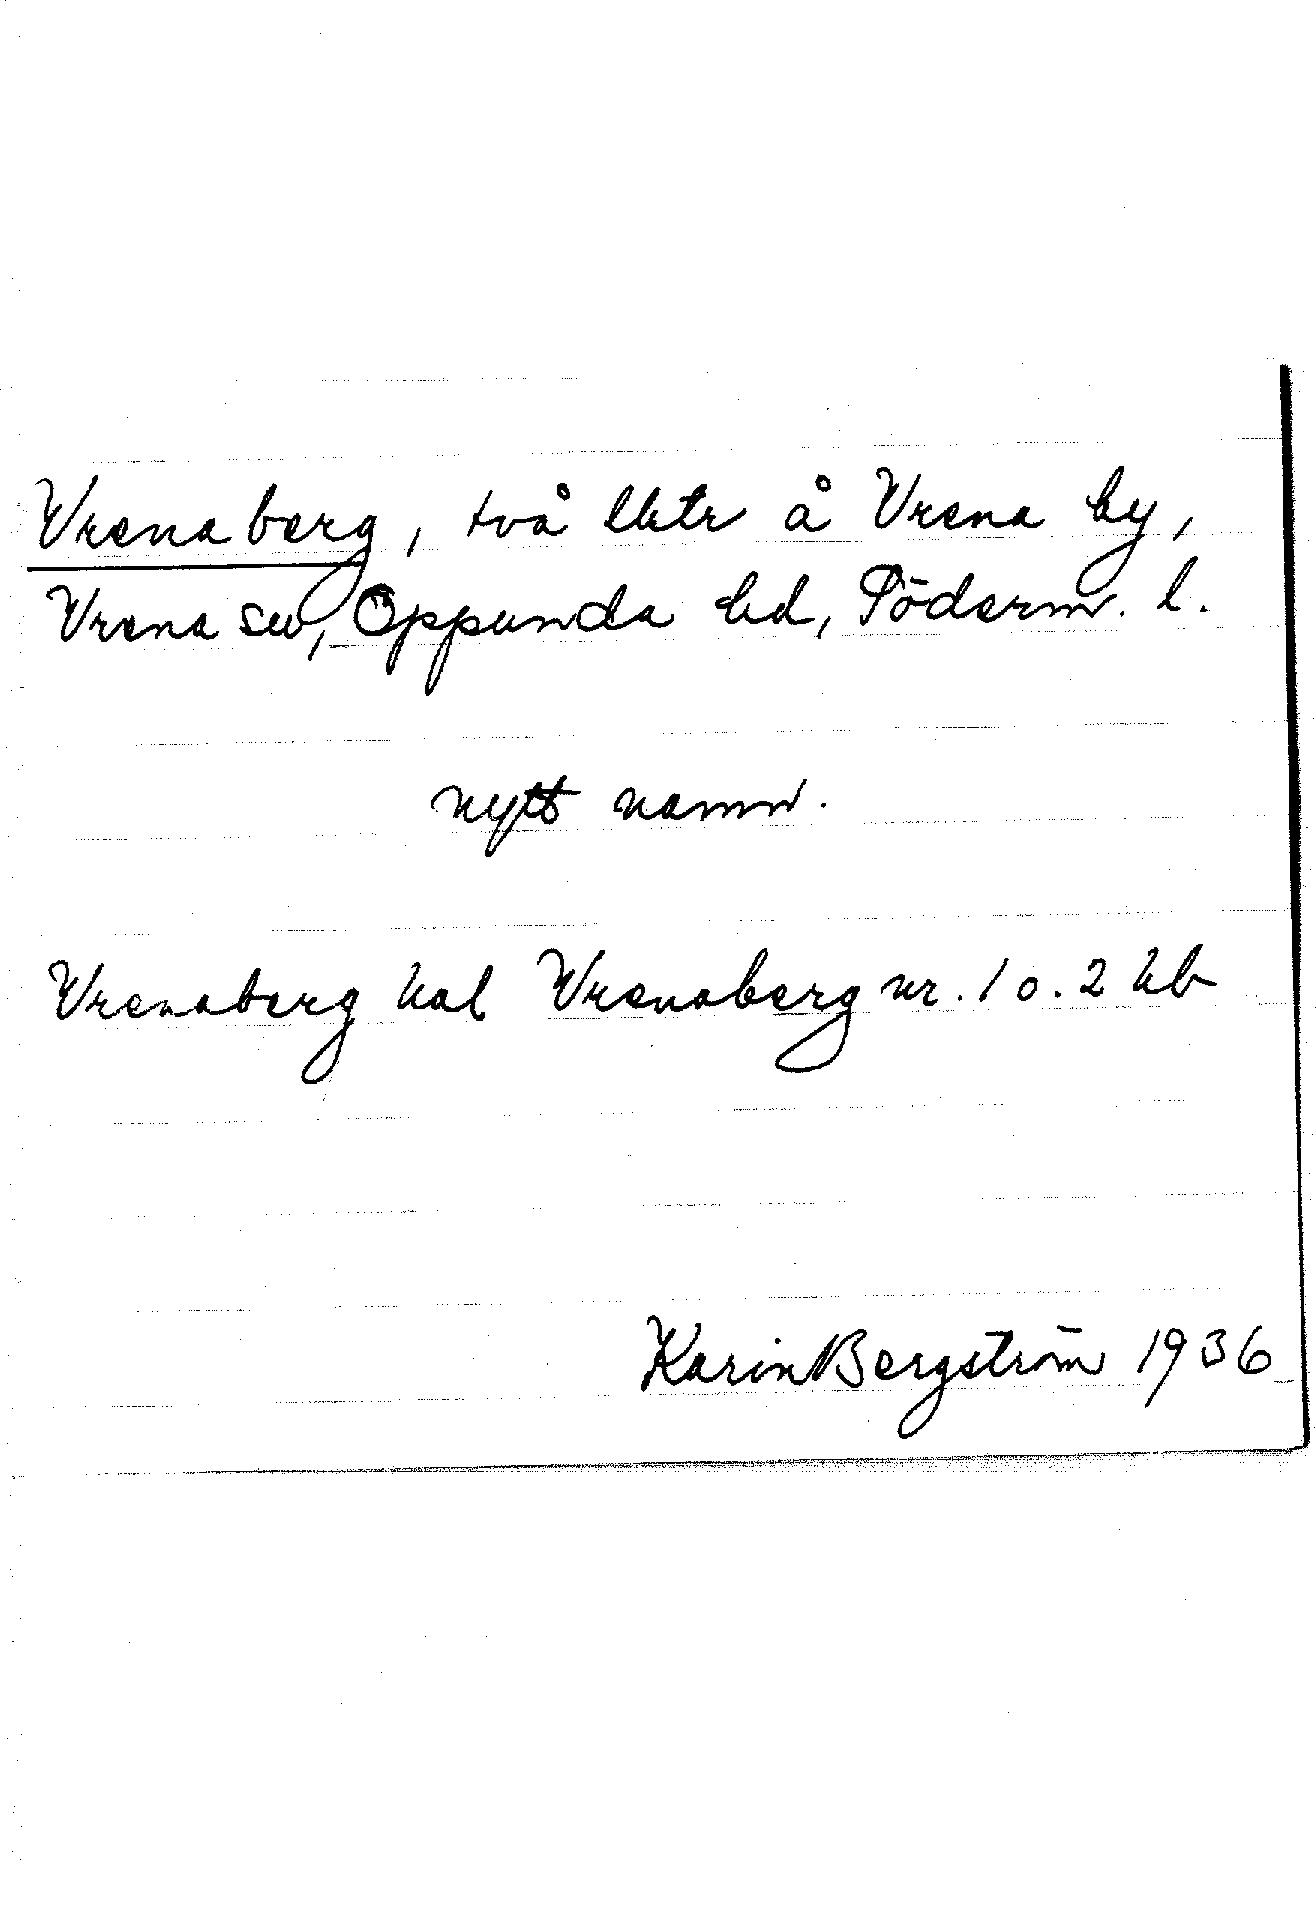 Vrenaberg, två lhtr å Vrena by,
Vrena sn, Oppunda hd, Söderm. l.
nytt namn.
Vrenaberg hal Vrenaberg nr. 1 o. 2 hb
Karin Bergström 1936